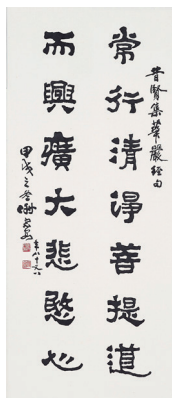 昔賢集華嚴經句
常行清淨菩提道
而興廣大悲愍心
甲戌之冬
年八十又八